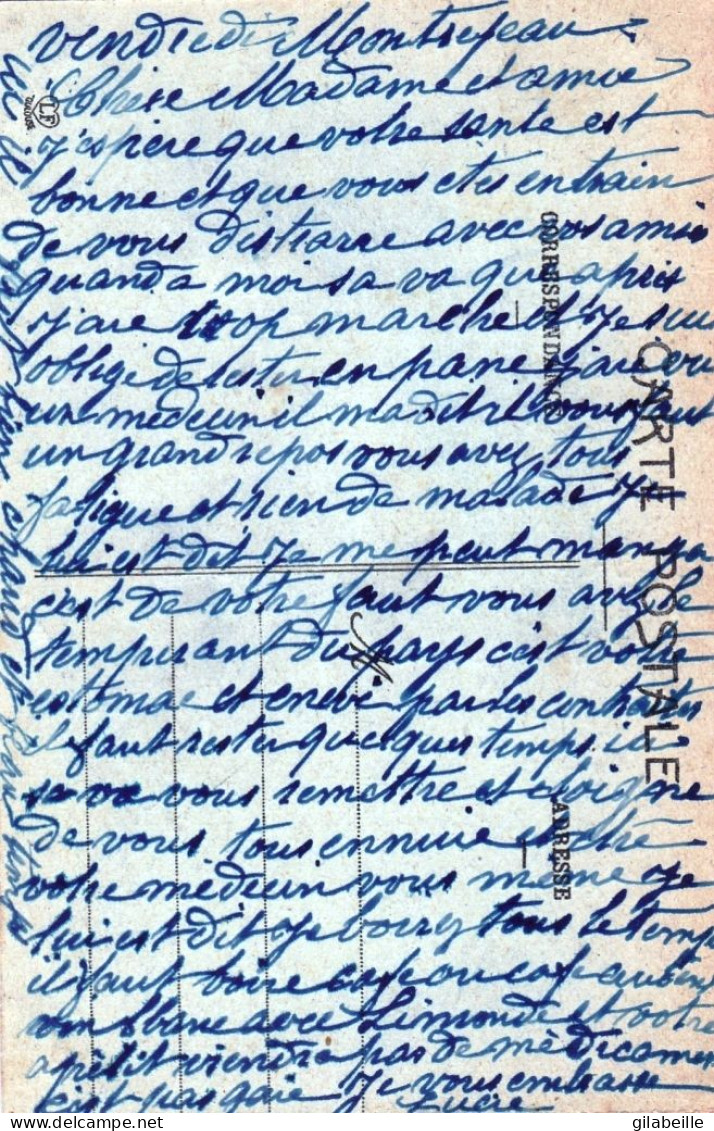 vendredi Montrejeau
Chere Madame et amie
j'espere que votre sante est
bonne et que vous etes en train
de vous distrare avec vos amies
quand a moi sa va que apres
j'aie trop marche et je sui
oblige de rester en pane j'aie vu
un medecin il ma dit il vous faut
un grand repos vous avez tous
fatigue et rien de malade je
lui est dit je me peut manga
c'est de votre faut vous avez le
temperant du pays c'est votre
estomac et enerve par les contraites
il faut rester quelques temps ici
sa va vous remettre et eloigne
de vous tous ennuie
votre medecin vous meme je
lui est dit je boire tous le temps
il faut boire cafe ou cafe
vin blanc avec Limonde et votre
apetit viendra pas de medicament
c'est pas gaie je vous embrasse
Lucie
ici il fait bien chaud et
LF
TOULOUSE
CARTE POSTALE
CORRESPONDANCE
ADRESSE
M
delcampe.net
gilabeille